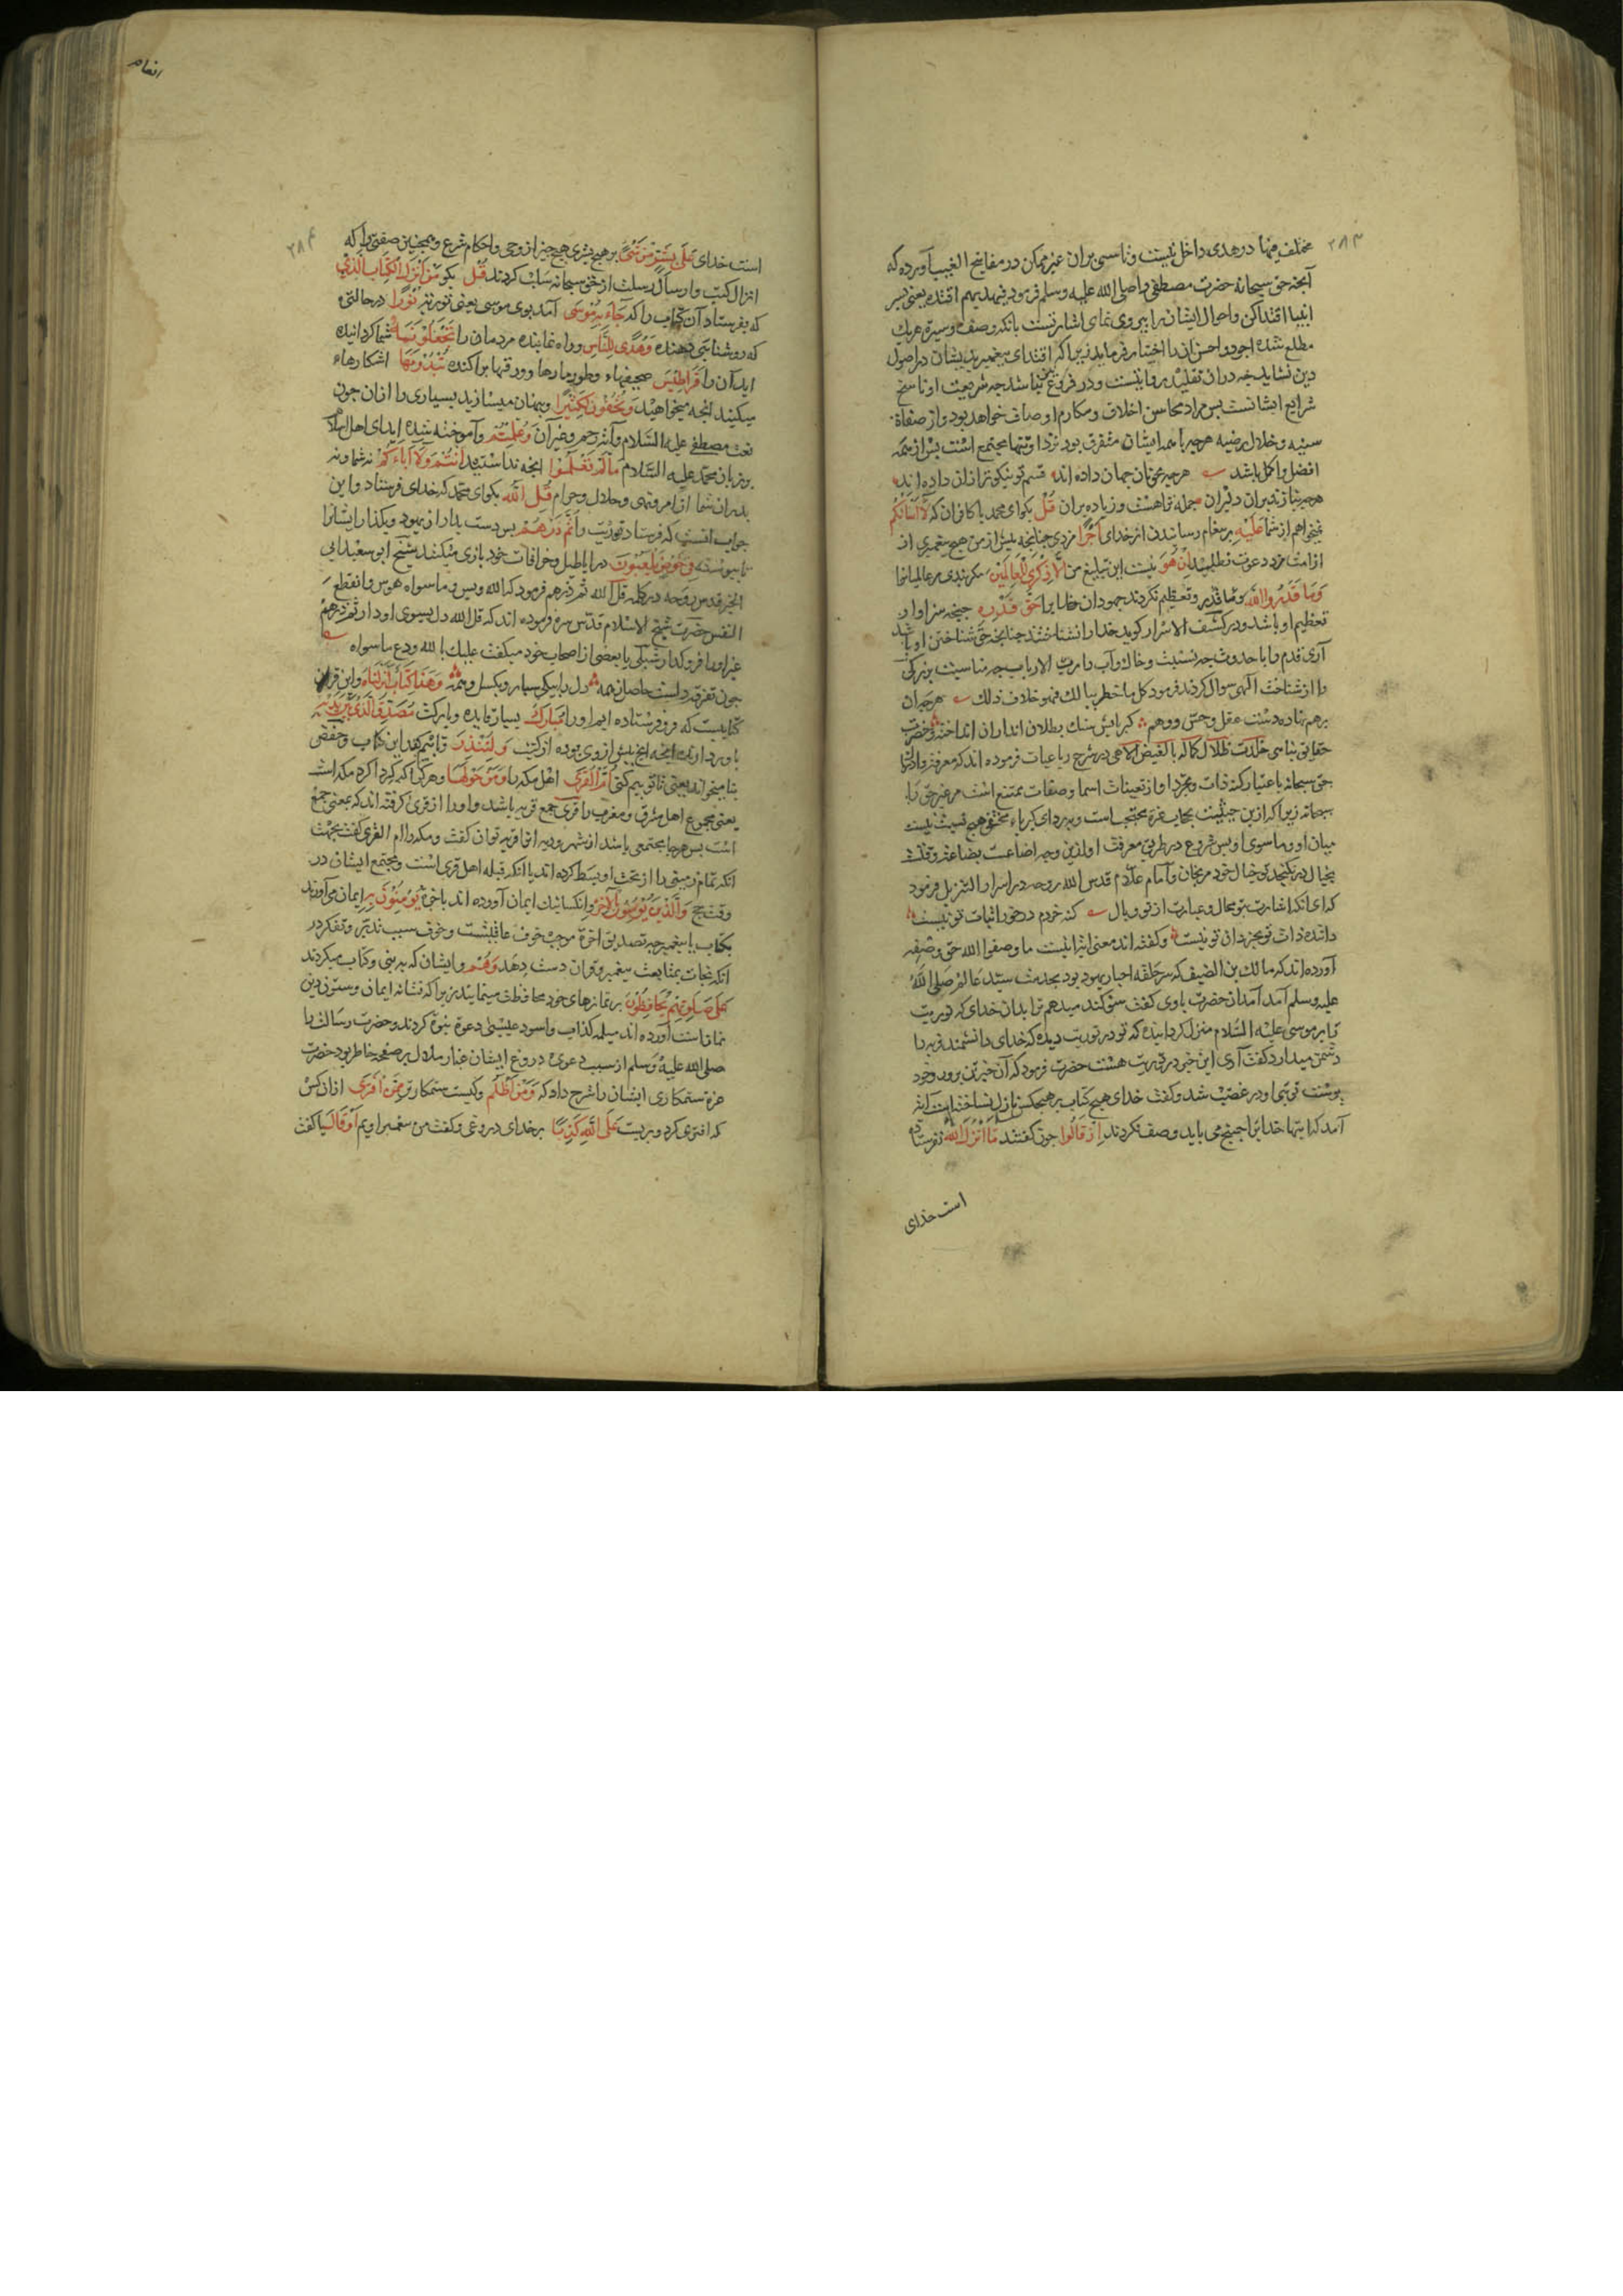 ۲۸۳
مختلف فیها در هدی داخل نیست و تاسی بران غیر ممکن در مفاتیح الغیب آورده که
آنجه حق سبحانه حضرت مصطفی را صلی الله علیه وسلم فرمود فبهدیهم اقتده یعنی بسر
انبیا اقتدا کن و احوال ایشان را پیروی نمای اشارتست بانکه وصف و سیرة هریك
مطلع شده اجود و احسن آن را اختیار فرماید زیرا که اقتدای پیغمبر بدیشان در اصول
دین نشاید چه دران تقلید روا نیست و در فروع نباشد چه شریعت او ناسخ
شرایع ایشانست بس مراد محاسن اخلاق و مکارم اوصاف خواهد بود و از صفاة
سنیه و خلال رضیه هرچه با همه ایشان متفرق بود نزد او تنها مجتمع است بس از همه
افضل و اکمل باشد هرچه بخوبان جهان داده اند قسم تو نیکوتر ازان داده اند
هرچه بنازند بران دلبران جمله ترا هست و زیاده بران قُل بکو ای محمد با کافران که لَا أَسْأَلُكُمْ
نمیخواهم از شما عَلَيْهِ بر پیغام رسانیدن از خدای أَجْرًا مزدی چنانچه بیش از من هیچ پیغمبری از
از امت مزد دعوت نطلبید إِنْ هُوَ نیست این تبلیغ من إِلَّا ذِكْرَى لِلْعَالَمِينَ مکر پندی مر عالمیانرا
وَمَا قَدَرُوا اللَّهَ و تعظیم نکردند جهودان خدا یرا حَقَّ قَدْرِهِ چنانچه سزاوار
تعظیم او باشد و در کشف الاسرار کوید خدا را نشناختند چنانچه حق شناختن او باشد
آری قدم را با حدوث چه نسبت و خاك و آب را رب الارباب چه مناسبت بزرکی
را از شناخت الهی سوال کردند فرمود کل ما خطر ببالك فهو خلاف ذلك هرچه بران
برهم نهاده دست عقل و حس و وهم کبریایش سنك بطلان اندران انداخته و حضرت
حقایق پناهی خلدت ظلال کماله در شرح رباعیات فرموده اند که معرفة ذات
حق سبحانه باعتبار کنه ذات و تجرد او از تعینات اسما و صفات ممتنع است مر غیر حق را
سبحانه زیرا که ازین حیثیت بحجاب عزة محتجب است و بردای کبریاء مختفی هیچ نسبت نیست
میان او و ما سوی او بس شروع در طریق معرفت او ازین وجه اضاعت بضاعة وقتست
بخیال درنکنجد تو خیال خود مرنجان و امام علام قدس الله روحه در اسرار التنزیل فرمود
که ای انکه اشارت بتو محال و عبارت از تو وبال کنه خردم در خور اثبات تو نیست
داننده ذات تو بجز ذات تو نیست و کفته اند معنی اینست ما وصفوا الله حق وصفه
آورده اند که مالك بن الضیف که سر حلقه احبار یهود بود بخدمت سید عالم صلی الله
علیه وسلم آمد آنحضرت با وی کفت سوکند میدهم ترا بدان خدای که توریت
را بر موسی علیه السلام منزل کردانیده که تو در توریت دیدۀ که خدای دانشمند فربه را
دشمن میدارد کفت آری این خبر در توریت هست حضرت فرمود که آن
آمد که اینها خدایرا چنانچه می باید وصف نکردند إِذْ قَالُوا چون کفتند مَا أَنْزَلَ اللَّهُ نفرستاده
است خدای
انعام
۲۸۴
است خدای عَلَى بَشَرٍ مِنْ شَيْءٍ بر هیچ بشری هیچ چیز از وحی و احکام شرع و همچنین صفتی را که
انزال کتب و ارسال رسلست از حق سبحانه سلب کردند قُلْ بکو مَنْ أَنْزَلَ الْكِتَابَ الَّذِي
که بفرستاد آن کتاب را که جَاءَ بِهِ مُوسَى آمد بوی موسی یعنی توریة نُورًا درحالتی
که روشنایی دهنده وَهُدًى لِلنَّاسِ و راه نماینده مردمان را تَجْعَلُونَهُ شما کردانیده
اید آن را قَرَاطِيسَ صحیفهاء و طومارها و ورقها پراکنده تُبْدُونَهَا اشکارهاء
میکنید آنچه میخواهید وَتُخْفُونَ كَثِيرًا و پنهان میسازید بسیاری را ازان چون
نعت مصطفی علیه السلام و آیة رجم و غیر آن وَعُلِّمْتُمْ و آموخته شده اید ای اهل اسلام
بر زبان محمد علیه السلام مَا لَمْ تَعْلَمُوا آنچه ندانستید أَنْتُمْ وَلَا آبَاؤُكُمْ نه شما و نه
پدران شما از امر و نهی و حلال و حرام قُلِ اللَّهُ بکو ای محمد که خدای فرستاد و این
جواب انست که فرستاد توریت را ثُمَّ ذَرْهُمْ بس دست بدار از یهود و بکذار ایشانرا
تا پیوسته فِي خَوْضِهِمْ يَلْعَبُونَ در اباطیل و خرافات خود بازی میکنند شیخ ابو سعید ابی
الخیر قدس روحه در کلمه قل الله ثم ذرهم فرمود که الله وبس و ما سواه هوس وانقطع
النفس حضرت شیخ الاسلام قدس سره فرموده اند که قل الله دل بسوی او دار ثم ذرهم
غیر او را فرو کذار شبلی با بعضی از اصحاب خود میکفت علیك بالله ودع ما سواه
چون تفرقه دلست حاصل ز همه دل را بیکی سپار و بکسل ز همه وَهَذَا كِتَابٌ أَنْزَلْنَاهُ و این قران
کتابیست که فرو فرستاده ایم او را مُبَارَكٌ بسیار فایده و بابرکت مُصَدِّقُ الَّذِي بَيْنَ يَدَيْهِ
باور دارنده آنچه پیش از وی بوده از کتب وَلِتُنْذِرَ
یعنی تا تو بیم کنی أُمَّ الْقُرَى اهل مکه را وَمَنْ حَوْلَهَا و هرکرا که کرداکرد مکه است
یعنی مجموع اهل مشرق و مغرب را قری جمع قریه باشد و او را از قری کرفته اند که بمعنی جمع
است بس هرجا مجتمعی باشد از شهر و دیه انرا قریه توان کفت و مکه را ام القری کفت بجهت
انکه تمام زمین را از تحت او بسط کرده اند یا انکه قبله اهل قری است و مجتمع ایشان در
وقت حج وَالَّذِينَ يُؤْمِنُونَ بِالْآخِرَةِ و انکسانیك ایمان آورده اند باخرة يُؤْمِنُونَ بِهِ ایمان می آورند
بکتاب یا پیغمبر چه تصدیق اخرة موجب خوف عاقبتست و خوف سبب تدبر و تفکر در
انکه نجات بمتابعت پیغمبر و قران دست دهد وَهُمْ و ایشان که به نبی و کتاب میکروند
عَلَى صَلَاتِهِمْ يُحَافِظُونَ بر نمازهای خود محافظت مینمایند زیرا که نشانه ایمان و ستون دین
نماز است آورده اند مسیلمه کذاب و اسود عنسی دعوة نبوة کردند و حضرت رسالت را
صلی الله علیه وسلم از سبب دعوی دروغ ایشان غبار ملال بر صفحه خاطر بود حضرت
عزة ستمکاری ایشان را شرح داد که وَمَنْ أَظْلَمُ و کیست ستمکارتر مِمَّنِ افْتَرَى ازان کس
که افترى کرد و بربست عَلَى اللَّهِ كَذِبًا بر خدای دروغی و کفت من پیغمبر اویم أَوْ قَالَ یا کفت